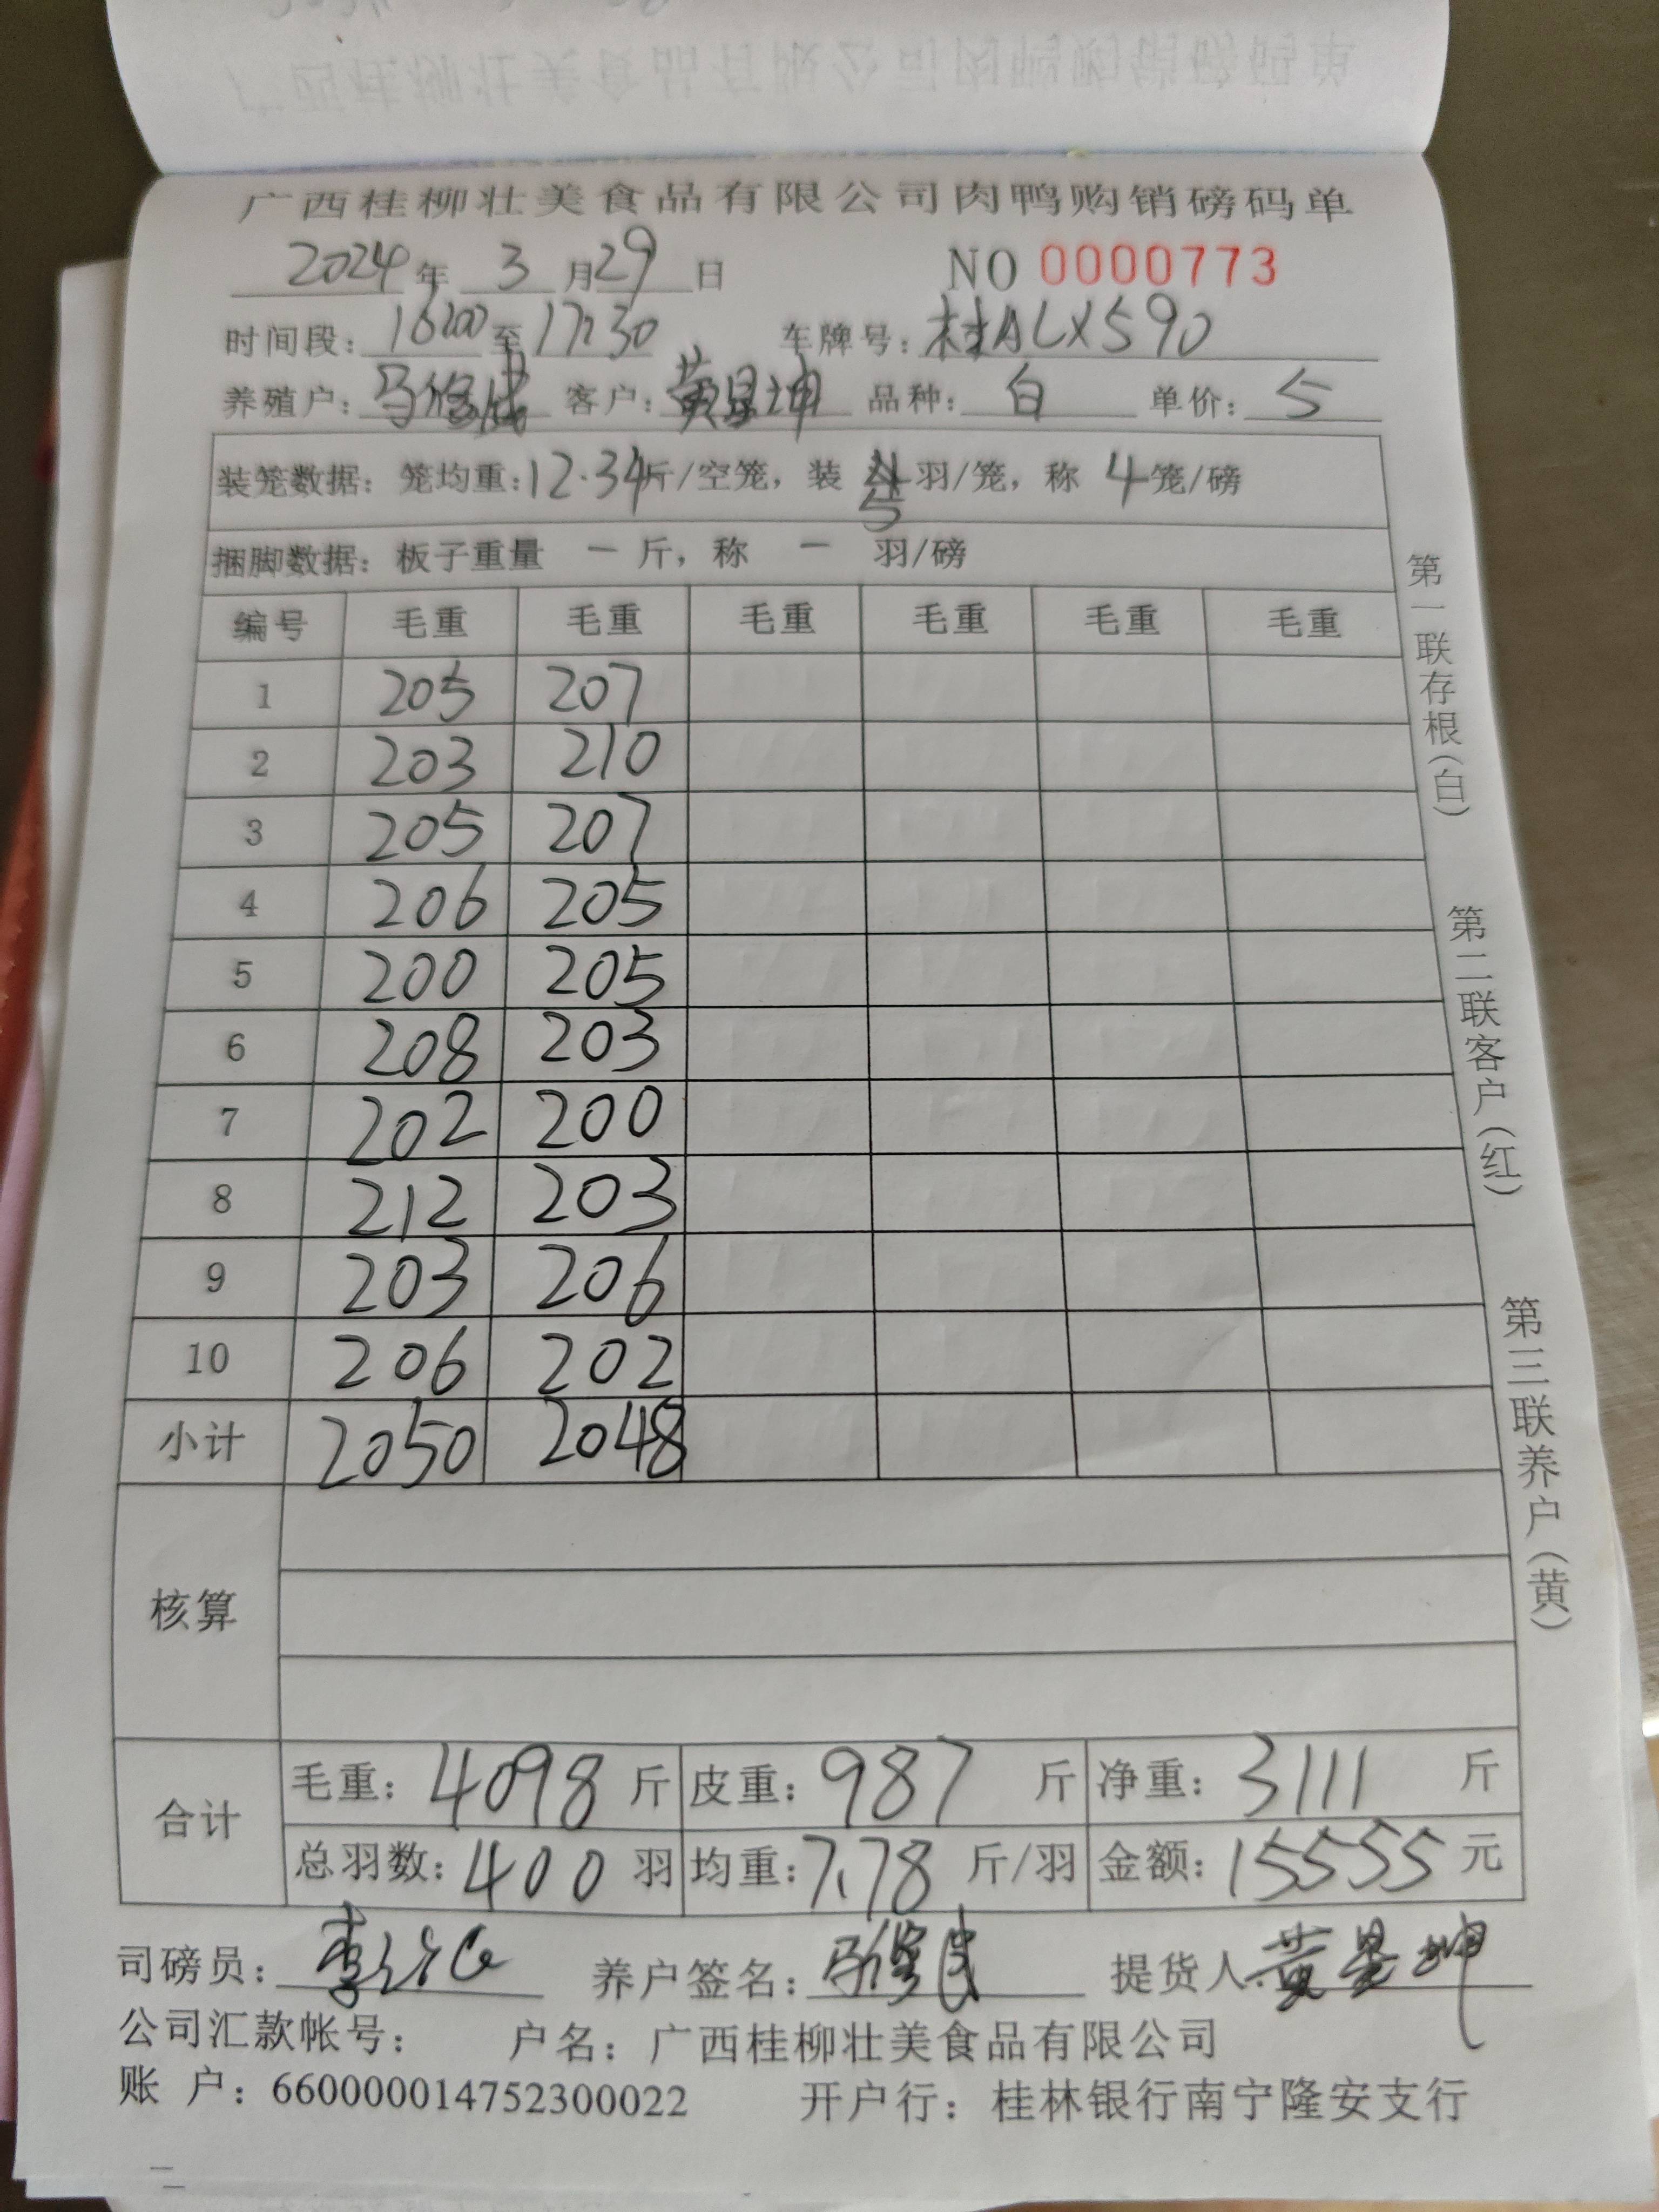 广西桂柳壮美食品有限公司肉鸭购销磅码单
2024年 3月29日 NO 0000773
时间段：16:00至17:30 车牌号：桂ALX590
养殖户：马 客户：黄昱坤 品种：白 单价：5
装笼数据：笼均重：12.34斤/空笼，装 5 羽/笼，称 4笼/磅
捆脚数据：板子重量 一 斤，称 一 羽/磅
编号 毛重 毛重 毛重 毛重 毛重 毛重
1 205 207
2 203 210
3 205 207
4 206 205
5 200 205
6 208 203
7 202 200
8 212 203
9 203 206
10 206 202
小计 2050 2048
核算
合计 毛重：4098斤 皮重：987 斤 净重：3111 斤
总羽数：400 羽 均重：7.78 斤/羽 金额：15555元
司磅员：李 养户签名：马 提货人：黄昱坤
公司汇款帐号： 户名：广西桂柳壮美食品有限公司
账 户：660000014752300022 开户行：桂林银行南宁隆安支行
第一联存根（白）
第二联客户（红）
第三联养户（黄）